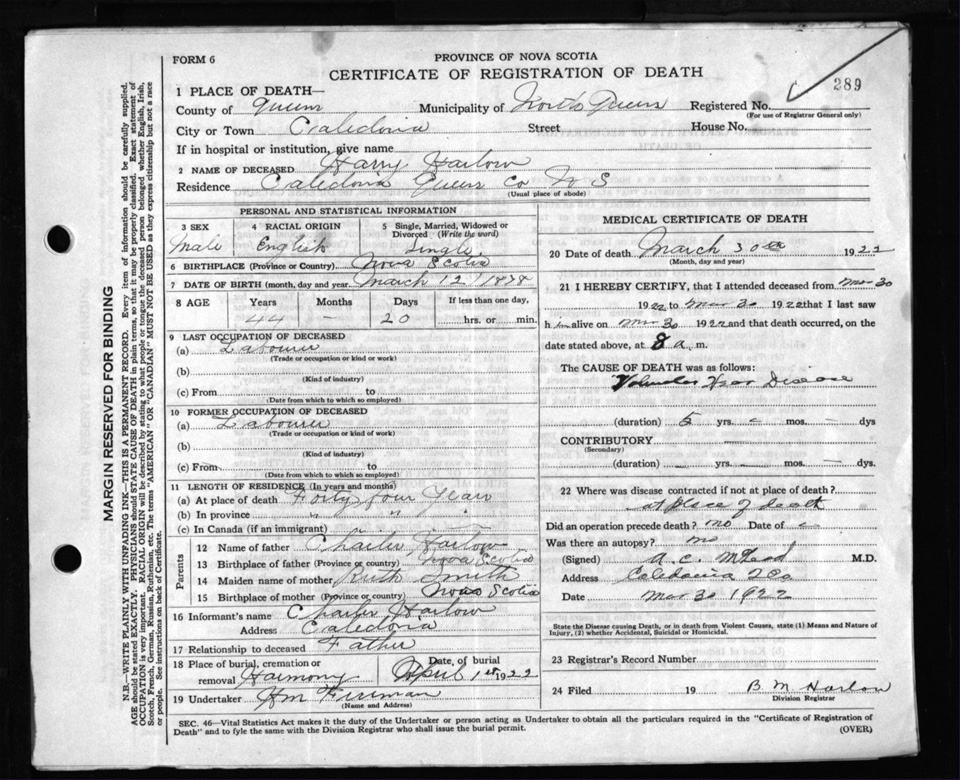 FORM 6
PROVINCE OF NOVA SCOTIA
CERTIFICATE OF REGISTRATION OF DEATH
289
1 PLACE OF DEATH—
County of Queens Municipality of North Queens Registered No.
(For use of Registrar General only)
City or Town Caledonia Street House No.
If in hospital or institution, give name
2 NAME OF DECEASED Harry Harlow
Residence Caledonia Queens Co N S
(Usual place of abode)
PERSONAL AND STATISTICAL INFORMATION
3 SEX Male
4 RACIAL ORIGIN English
5 Single, Married, Widowed or Divorced (Write the word) Single
6 BIRTHPLACE (Province or Country) Nova Scotia
7 DATE OF BIRTH (month, day and year) March 12, 1878
8 AGE Years Months Days If less than one day,
44 – 20 hrs. or min.
9 LAST OCCUPATION OF DECEASED
(a) Labourer
(Trade or occupation or kind or work)
(b)
(Kind of industry)
(c) From to
(Date from which to which so employed)
10 FORMER OCCUPATION OF DECEASED
(a) Labourer
(Trade or occupation or kind of work)
(b)
(Kind of industry)
(c) From to
(Date from which to which so employed)
11 LENGTH OF RESIDENCE (In years and months)
(a) At place of death Forty four Years
(b) In province " " "
(c) In Canada (if an immigrant)
Parents
12 Name of father Charles Harlow
13 Birthplace of father (Province or country) Nova Scotia
14 Maiden name of mother Ruth Smith
15 Birthplace of mother (Province or Country) Nova Scotia
16 Informant's name Charles Harlow
Address Caledonia
17 Relationship to deceased Father
18 Place of burial, cremation or removal Harmony
Date of burial April 1st 1922
19 Undertaker Wm Freeman
(Name and Address)
MEDICAL CERTIFICATE OF DEATH
20 Date of death March 30th 1922
(Month, day and year)
21 I HEREBY CERTIFY, that I attended deceased from Mar 30
1922 to Mar 30 1922 that I last saw
h im alive on Mar 30 1922 and that death occurred, on the
date stated above, at 8 a. m.
The CAUSE OF DEATH was as follows:
Disease
(duration) 5 yrs. – mos. – dys
CONTRIBUTORY
(Secondary)
(duration) – yrs. – mos. – dys.
22 Where was disease contracted if not at place of death?
at place of death
Did an operation precede death? no Date of
Was there an autopsy? no
(Signed) A. C. McLeod M.D.
Address Caledonia Q Co
Date Mar 30 1922
State the Disease causing Death, or in death from Violent Causes, state (1) Means and Nature of Injury, (2) whether Accidental, Suicidal or Homicidal.
23 Registrar's Record Number
24 Filed 19 B M Harlow
Division Registrar
SEC. 46—Vital Statistics Act makes it the duty of the Undertaker or person acting as Undertaker to obtain all the particulars required in the "Certificate of Registration of
Death" and to fyle the same with the Division Registrar who shall issue the burial permit.
(OVER)
MARGIN RESERVED FOR BINDING
N.B.—WRITE PLAINLY WITH UNFADING INK—THIS IS A PERMANENT RECORD. Every item of information should be carefully supplied.
AGE should be stated EXACTLY. PHYSICIANS should STATE CAUSE OF DEATH in plain terms, so that it may be properly classified. Exact statement of
OCCUPATION is very important. RACIAL ORIGIN will be described by stating to what people or tongue the deceased person belonged whether English, Irish,
Scotch, French, German, Russian, Ruthenian, etc. The terms "AMERICAN" OR "CANADIAN" MUST NOT BE USED as they express citizenship but not a race
or people. See instructions on back of Certificate.